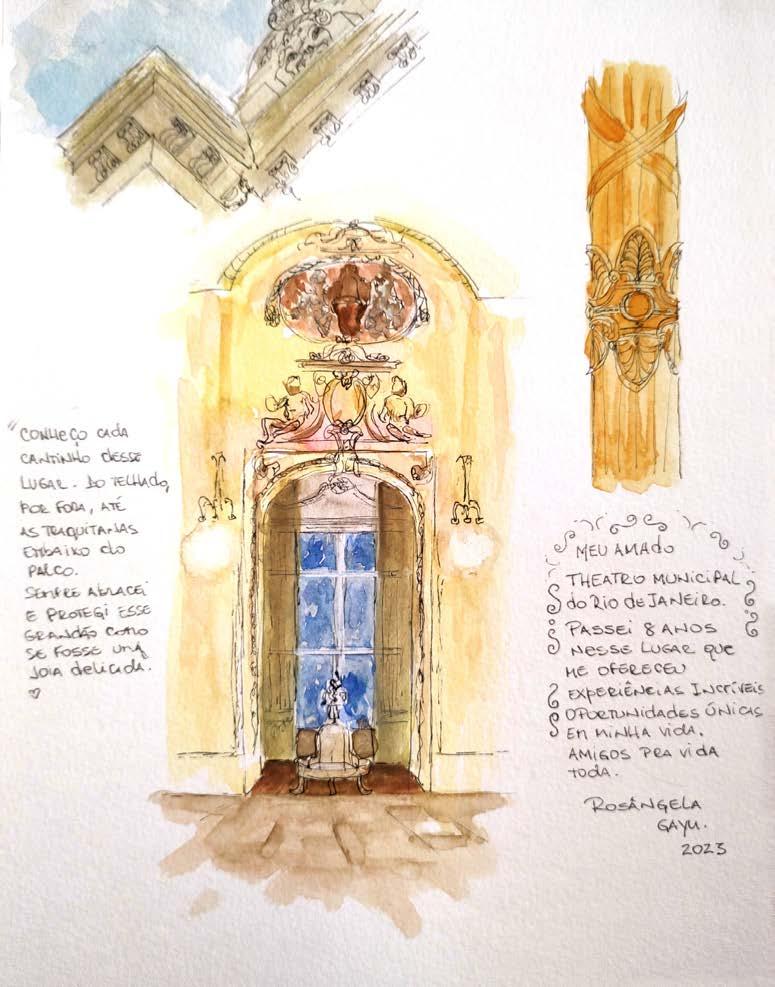 "CONHEÇO CADA
CANTINHO DESSE
LUGAR. DO TELHADO,
POR FORA, ATÉ
AS TRAQUITANAS
EMBAIXO DO
PALCO.
SEMPRE ABRACEI
E PROTEGI ESSE
GRANDÃO COMO
SE FOSSE UMA
JOIA DELICADA.
MEU AMADO
THEATRO MUNICIPAL
do RIO DE JANEIRO.
PASSEI 8 ANOS
NESSE LUGAR QUE
ME OFERECEU
EXPERIÊNCIAS INCRÍVEIS
OPORTUNIDADES ÚNICAS
EM MINHA VIDA.
AMIGOS PRA VIDA
TODA.
ROSÂNGELA
GAYU.
2023